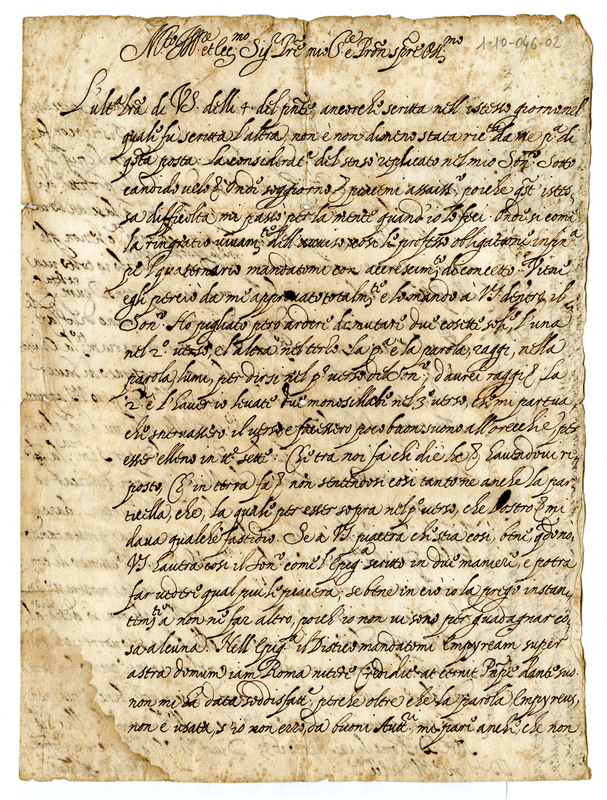 1-10-046-02
Mto Illre et Ecc.mo Sig.r Pre mio e Pron
L'ult.a lra di VS. delli 4. del pnte, ancorche scritta nell'istesso giorno nel
quale fu scritta l'altra, non e non dimeno stata da me p.a di
qsta posta. La del senso replicato nel mio Son.o Sotto
candido velo, & Ondi soggiorno & piacemi assaiss.o, poiche qst' istes-
sa difficolta mi passo per la mente quand' io lo feci. Onde si come
la ringratio dell'avviso cosi le professo
pe l' quaternario mandatomi con di concetto. Viene
egli perciò da me approvato e lo mando à VS. dentro il
Son.o Ho pigliato però ardire di mutare due cosette sole, l'una
nel 2.o verso, e l'altra nel terzo. La p.a è la parola, raggi, nella
parola, lumi, per dirsi nel p.o verso del Son.o, d'aurei raggi &. La
2.a è l'haverio levate due monosillabi nel 3.o verso, che mi pareva
che il verso e facessero poco buon suono all'orecchie per
esser elleno in sette. Chi tra noi fa chi di che & havendovi ri-
posto, Chi in terra fa & non stendosi così tanto ne anche la par-
ticella, che, la quale per esser sopra nel p.o verso, che vostro & mi
dava qualche fastidio. Se à VS. piacerà che stia così, bene
VS. havrà così il Son.o come l'Epig.a scritto in due maniere, e potrà
far vedere qual più le piacerà, se bene in ciò io la prego instan-
a non ne far altro, poiche io non vi sono per guadagnar co-
sa alcuna. Nell'Epig.a il Distico mandatomi Empyream super
astra domum iam Roma nitere Credidit at eterni Principe dante suo
non mi ha data soddisfatt.e, perche oltre che la parola Empyreus,
non è usata, s'io non erro, da buoni Aut.ri mi pare anche, che non